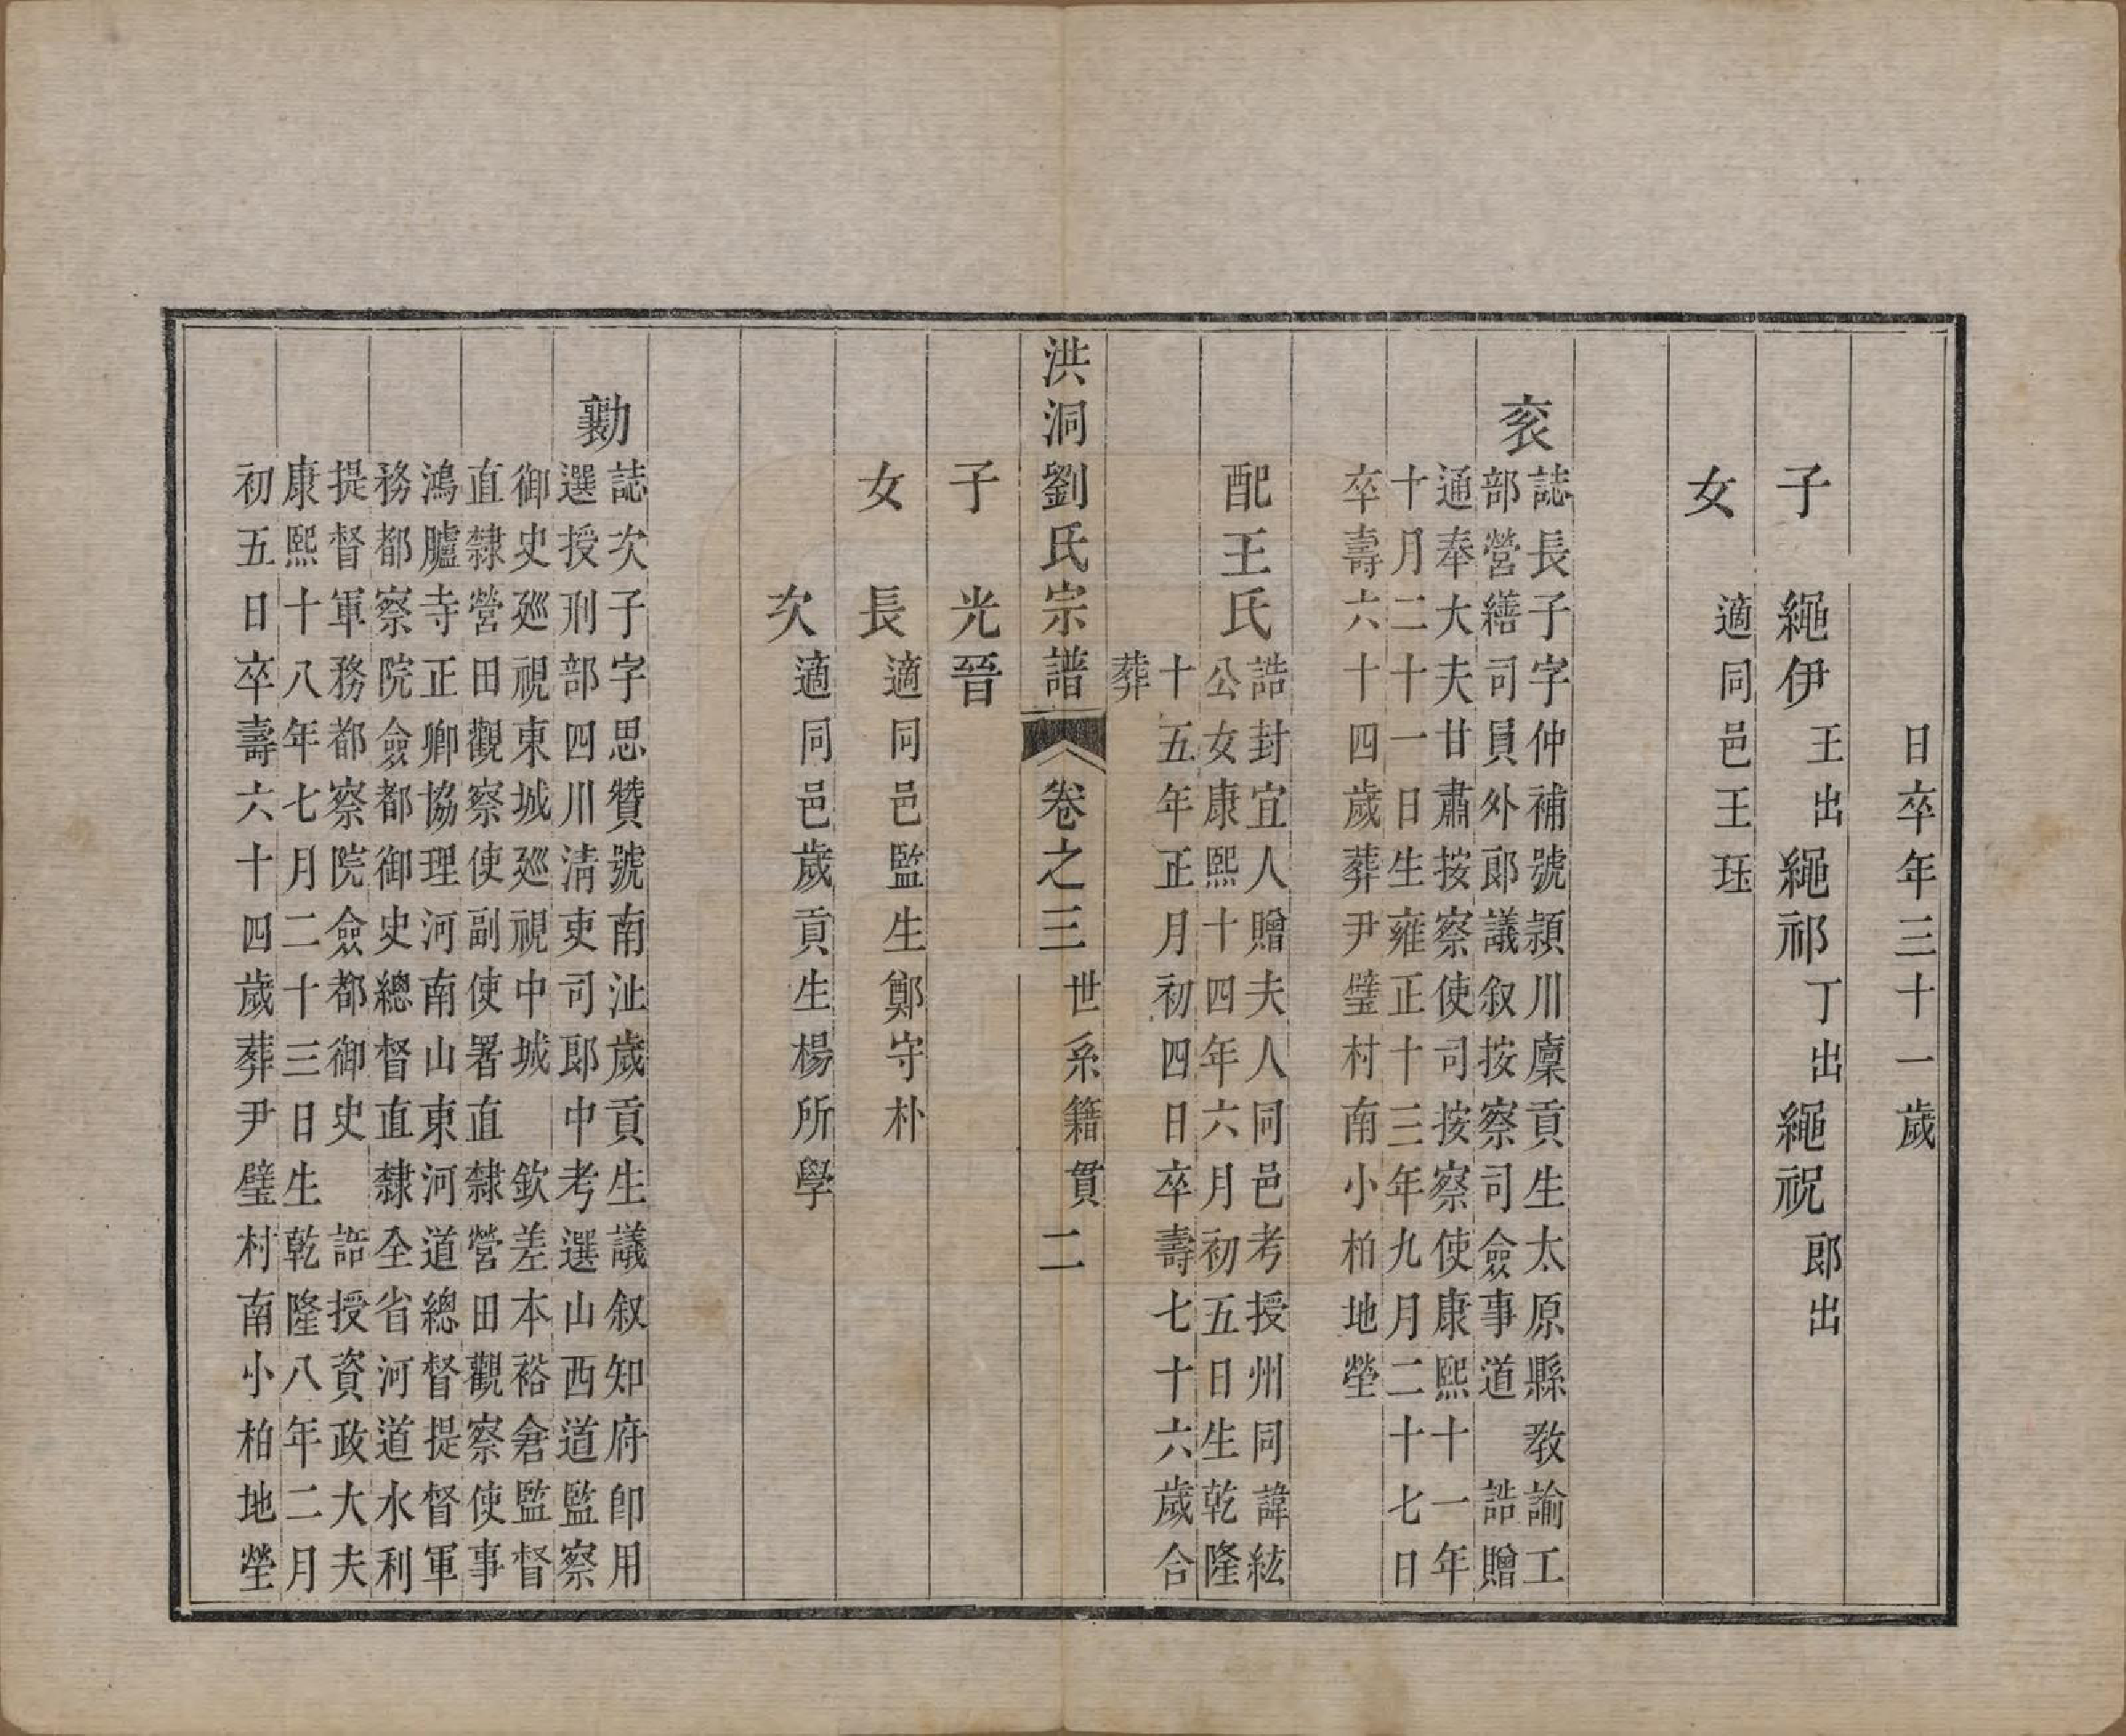 日卒年三十一歲
子 繩伊王出 繩祁丁出 繩祝郎出
女 適同邑王珏
衮
誌長子字仲補號潁川廩貢生太原縣教諭工
部營繕司員外郎議叙按察司僉事道 誥贈
通奉大夫甘肅按察使司按察使康熙十一年
十月二十一日生雍正十三年九月二十七日
卒壽六十四歲葬尹璧村南小柏地塋
配王氏
誥封宜人贈夫人同邑考授州同諱紘
公女康熙十四年六月初五日生乾隆
十五年正月初四日卒壽七十六歲合
葬
洪洞劉氏宗譜 卷之三 世系籍貫 二
子 光晉
女 長適同邑監生鄭守朴
次適同邑歲貢生楊所學
勷
誌次子字思贊號南沚歲貢生議叙知府即用
選授刑部四川清吏司郎中考選山西道監察
御史廵視東城廵視中城 欽差本裕倉監督
直隸營田觀察使副使署直隸營田觀察使事
鴻臚寺正卿協理河南山東河道總督提督軍
務都察院僉都御史總督直隸全省河道水利
提督軍務都察院僉都御史 誥授資政大夫
康熙十八年七月二十三日生乾隆八年二月
初五日卒壽六十四歲葬尹璧村南小柏地塋